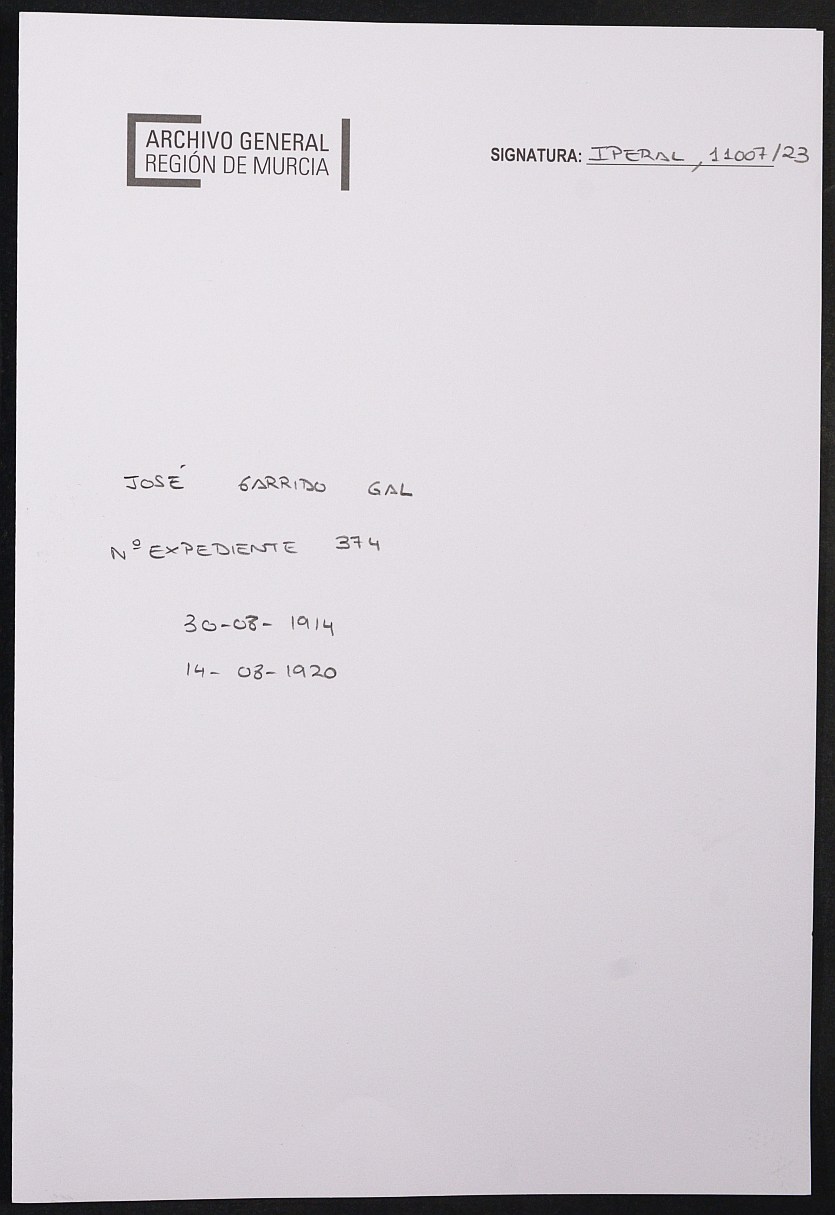 ARCHIVO GENERAL
REGIÓN DE MURCIA
SIGNATURA: IPERAL, 11007/23
JOSÉ GARRIDO GAL
Nº EXPEDIENTE 374
30-08-1914
14-08-1920